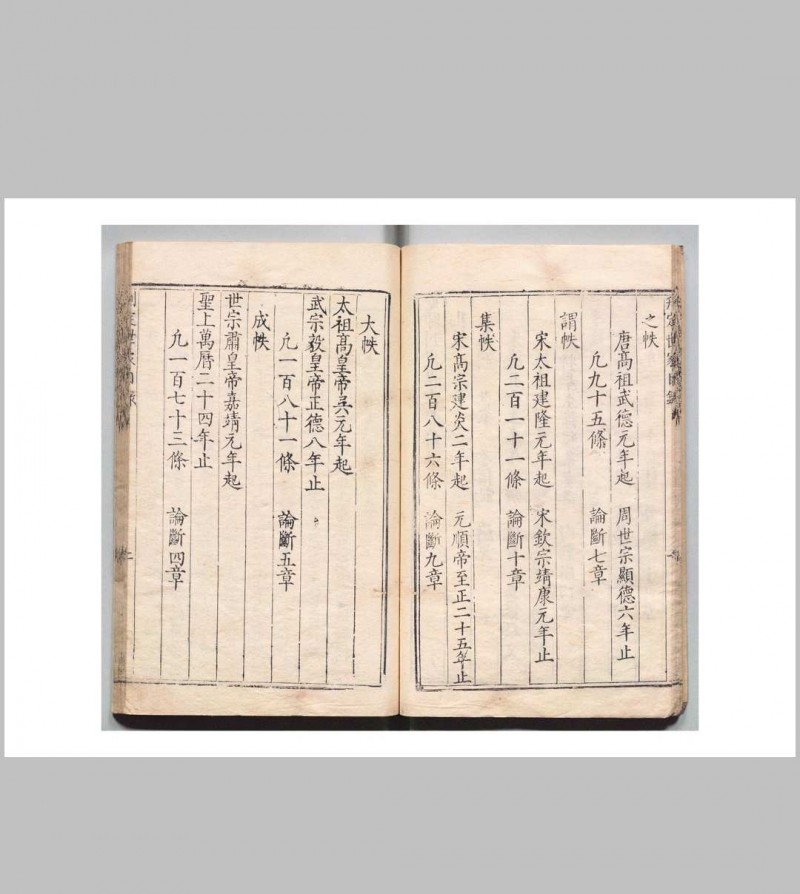 之帙
唐高祖武德元年起 周世宗顯德六年止
凢九十五條 論斷七章
謂帙
宋太祖建隆元年起 宋欽宗靖康元年止
凢二百一十一條 論斷十章
集帙
宋高宗建炎二年起 元順帝至正二十五年止
凢二百八十六條 論斷九章
大帙
太祖高皇帝吳元年起
武宗毅皇帝正德八年止
凢一百八十一條 論斷五章
成帙
世宗肅皇帝嘉靖元年起
聖上萬曆二十四年止
凢一百七十三條 論斷四章